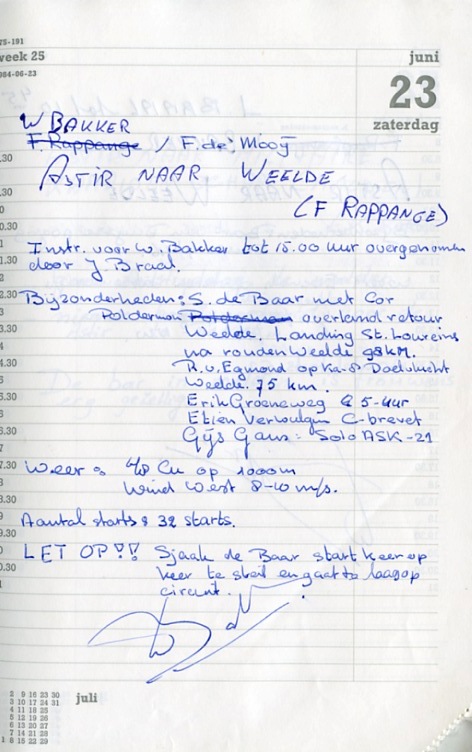 75-191
week 25
984-06-23
juni
23
zaterdag
W BAKKER
F. Rappange / F. de Mooÿ
ASTIR NAAR WEELDE
(F RAPPANGE)
Instr. voor W. Bakker tot 15.00 uur overgenomen
door J Braal.
Bijzonderheden: S. de Baar met Cor
Polderman Polderman overland retour
Weelde. Landing St. Loureins
na ronden Weelde 98 km.
R. v. Egmond op Ka-8 Doelvlucht
Weelde. 75 km.
Erik Groeneweg 5-uur
Etiën Verbruggen C-brevet
Gÿs Gans: Solo ASK-21
Weer: 4/8 Cu op 1000m
Wind West 8-10 m/s.
Aantal starts: 32 starts.
LET OP!! Sjaak de Baar start keer op
keer te steil en gaat te laag op
circuit.
.30
0
0.30
1
1.30
2
2.30
3
3.30
4
4.30
5
5.30
6
6.30
7
7.30
8
8.30
9
9.30
0
0.30
1
juli
2 9 16 23 30
3 10 17 24 31
4 11 18 25
5 12 19 26
6 13 20 27
7 14 21 28
1 8 15 22 29